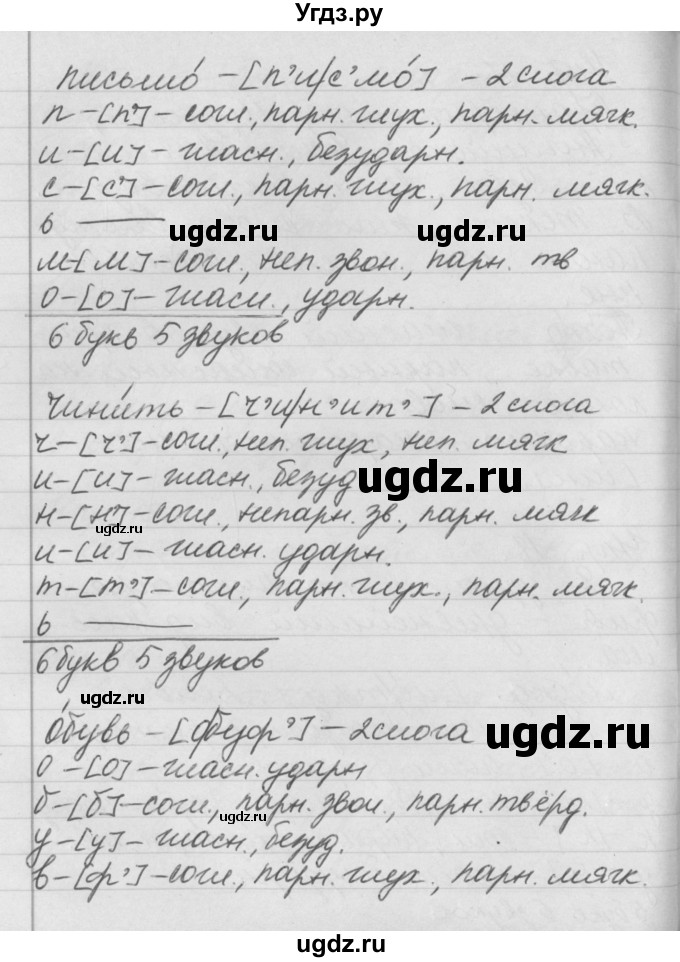 Угдз.ру
письмо́ – [п’и/с’мо́] – 2 слога
п – [п’] – согл., парн. глух., парн. мягк.
и – [и] – гласн., безударн.
с – [с’] – согл., парн. глух., парн. мягк.
ь ———
ugdz.ru ugdz.ru
м – [м] – согл., неп. звон., парн. тв
о – [о] – гласн., ударн.
6 букв 5 звуков
Чини́ть – [ч’и/н’ит’] – 2 слога
ч – [ч’] – согл., неп. глух, неп. мягк
и – [и] – гласн., безуд
ugdz.ru
н – [н’] – согл., непарн. зв., парн. мягк
ugdz.ru
и – [и] – гласн. ударн.
т – [т’] – согл., парн. глух., парн. мягк.
ь ———
6 букв 5 звуков
ugdz.ru
О́бувь – [обуф’] – 2 слога
ugdz.ru
о – [о] – гласн. ударн
б – [б] – согл., парн. звон., парн. твёрд.
у – [у] – гласн., безуд.
в – [ф’] – согл., парн. глух., парн. мягк.
ugdz.ru